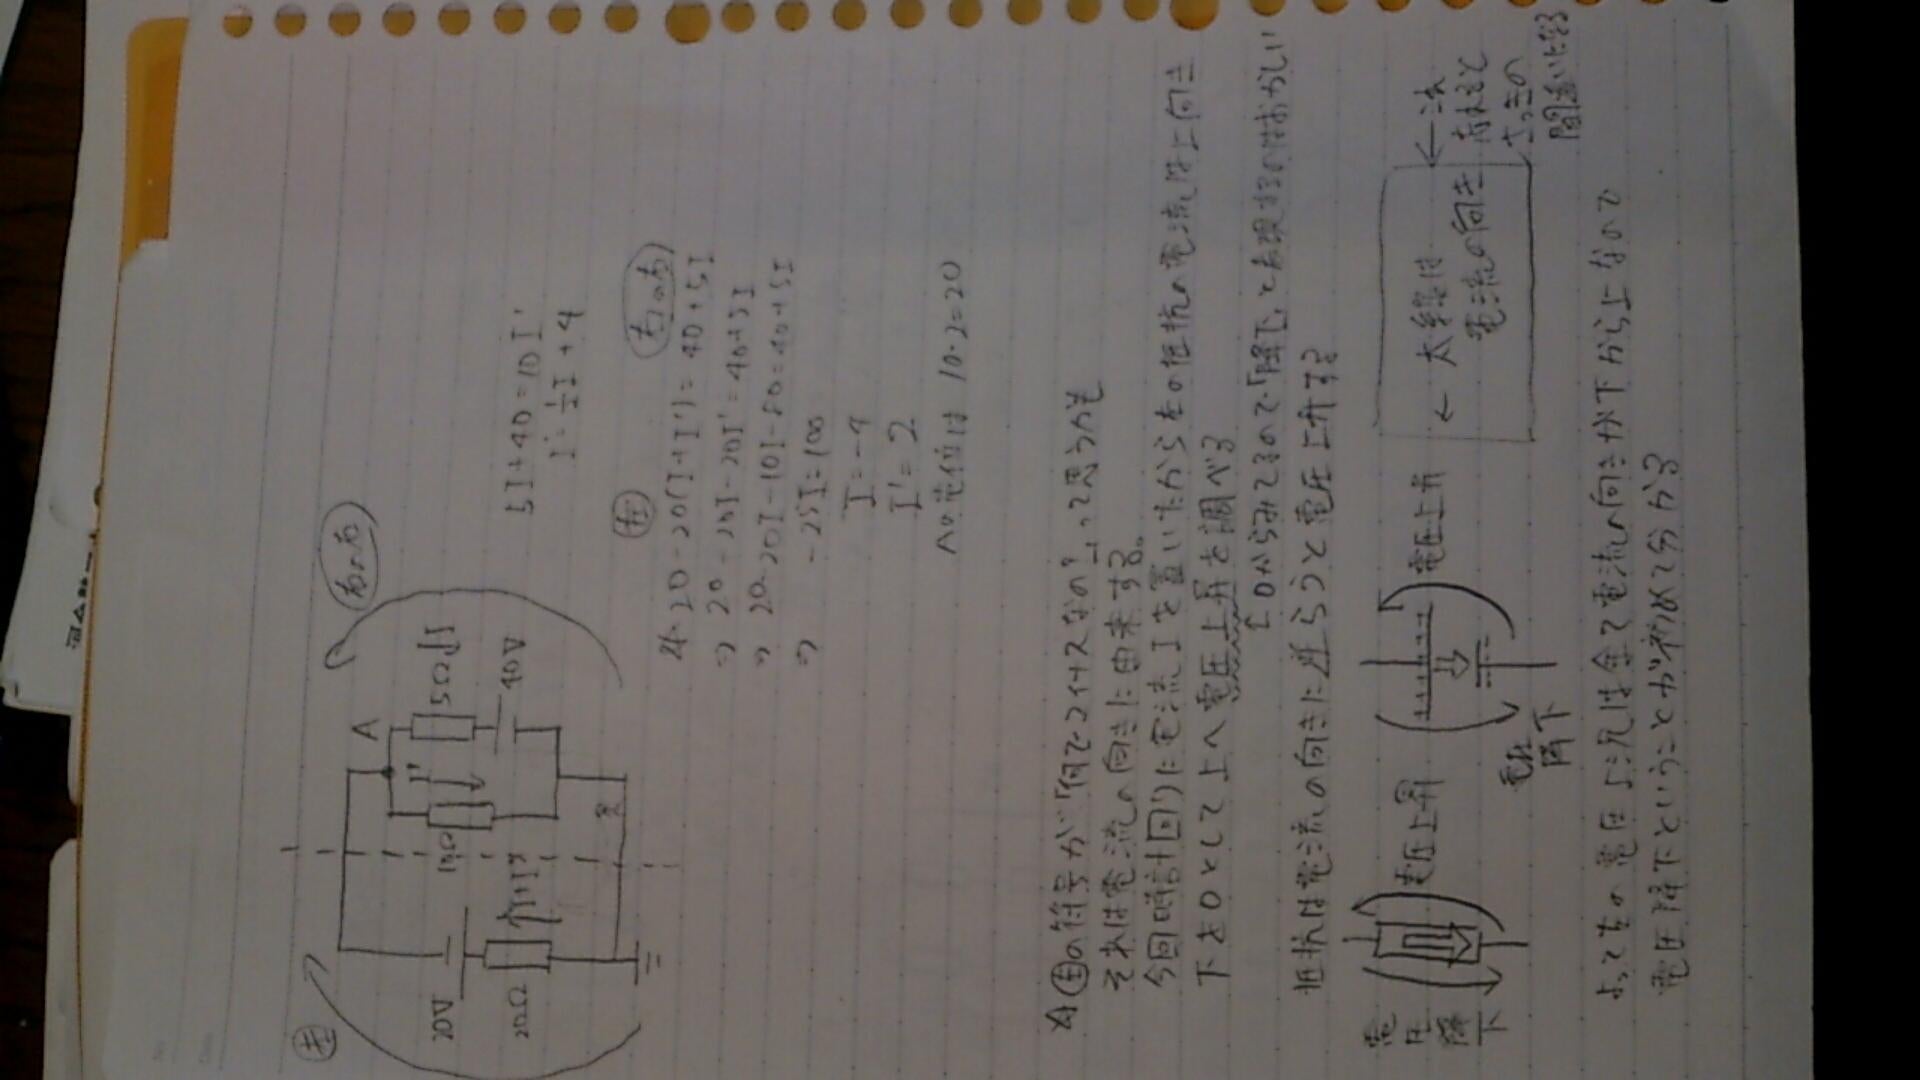 左
右の右
20V
20Ω
10Ω
I'
A
5Ω
I
40V
I+I'
5I+40=10I'
I'=½I+4
左
右の右
-20-20(I+I')=40+5I
⇒ 20-20I-20I'=40+5I
⇒ 20-20I-10I-80=40+5I
⇒ -25I=100
I=-4
I'=2
Aの電位は 10・2=20
左の符号が「何で-2く+2なの?」って思うかも
それは電流の向きに由来する。
今回時計回りに電流Iを置いたから左の抵抗の電流は上向き
下を0として上へ電圧上昇を調べる
↑0からみてるので「降下」と表現するのはおかしい
抵抗は電流の向きに逆らうと電圧上昇する
電圧降下
電圧上昇
電圧降下
電圧上昇
← 太線は
電流の向き
←
忘れると
さっきの
間違いになる
よって左の電圧状況は全て電流の向きが下から上なので
電圧降下ということが初めて分かる